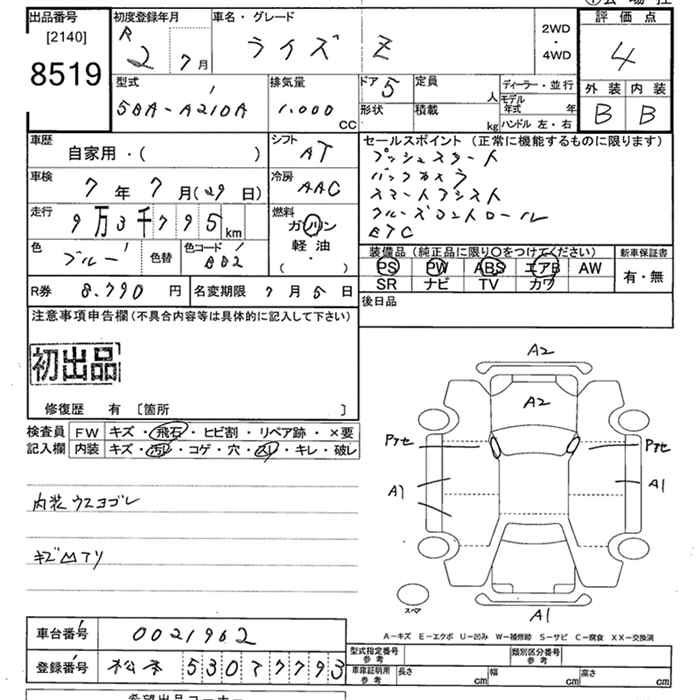 出品番号
[2140]
8519
初度登録年月
R
2 7月
車名・グレード
ライズ Z
2WD
・
4WD
評価点
4
外装 内装
B B
型式
5BA-A210A
排気量
1.000
CC
ドア 5
形状
定員
人
積載
kg
ディーラー・並行
モデル
年式 年
ハンドル 左・右
車歴
自家用・( )
シフト
AT
車検
7年7月(29日)
冷房
AAC
走行
9万3千795km
燃料
ガソリン
軽油
( ・ )
色
ブルー
色替
色コード
BB2
セールスポイント(正常に機能するものに限ります)
プッシュスタート
バックカメラ
スマートアシスト
クルーズコントロール
ETC
装備品(純正品に限り〇をつけてください)
新車保証書
PS PW ABS エアB AW
SR ナビ TV カワ
有・無
R券 8.790円
名変期限 7月5日
後日品
注意事項申告欄(不具合内容等は具体的に記入して下さい)
初出品
修復歴 有 [箇所 ]
検査員
記入欄
FW キズ・飛石・ヒビ割・リペア跡・×要
内装 キズ・汚レ・コゲ・穴・凹・キレ・破レ
内装ウスヨゴレ
キズ凹アリ
A2
A2
Pアセ
Pアセ
A1
A1
スペア
A1
A-キズ E-エクボ U-凹み W-補修跡 S-サビ C-腐食 XX-交換済
車台番号 0021962
登録番号 松本 530 7 7793
型式指定番号
参考
類別区分番号
参考
車庫証明用
参考
長さ cm
幅 cm
高さ cm
希望出品コーナー